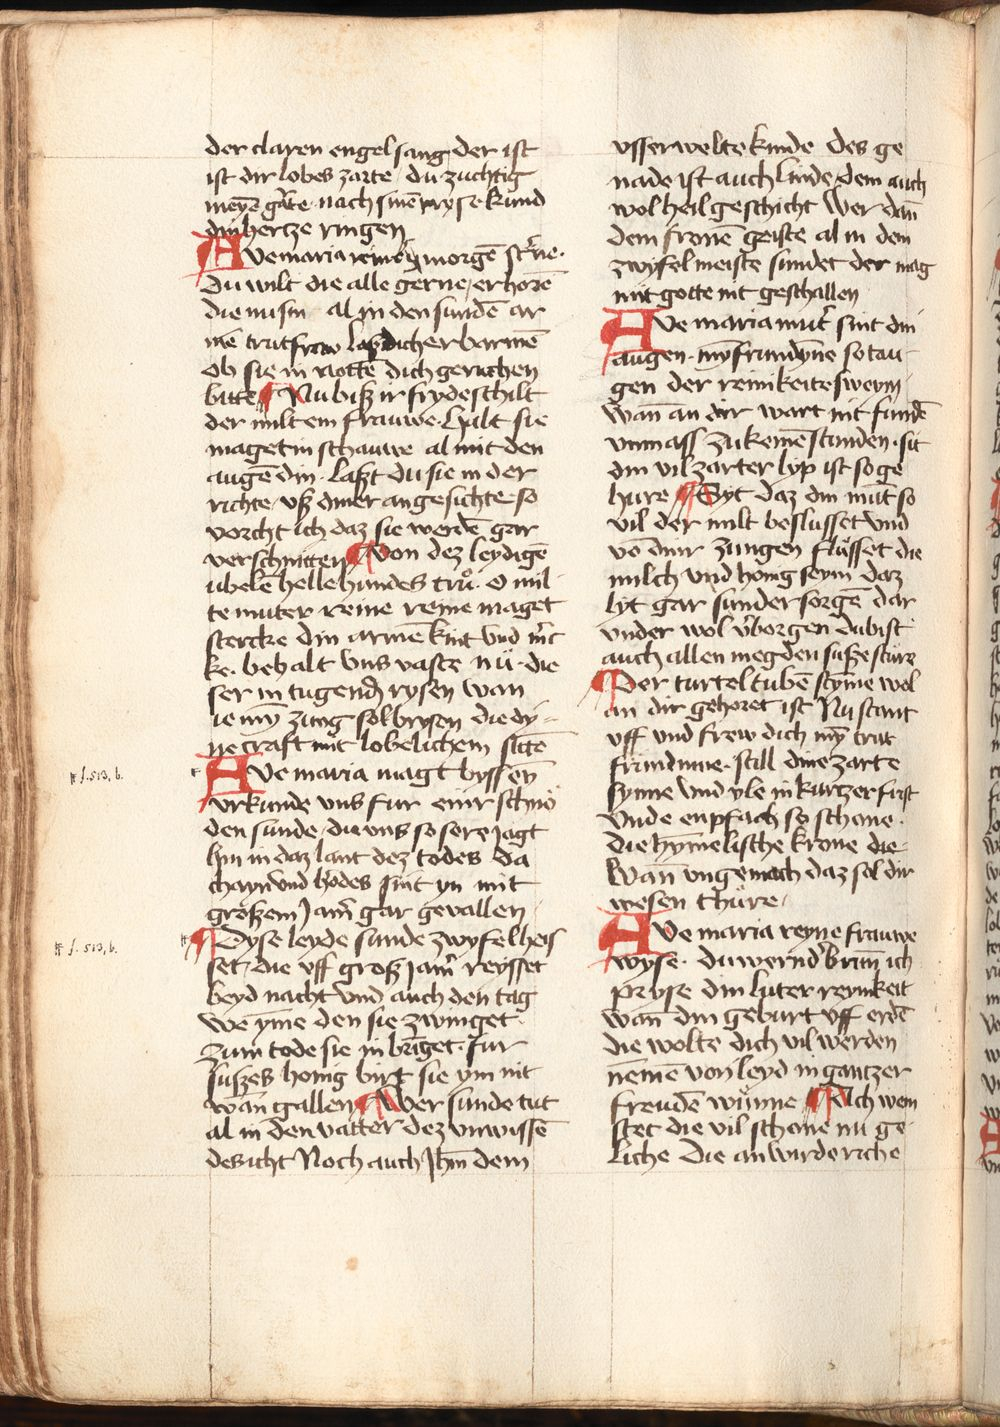 der claren engel sang der ist
ist dir lobes zarte / du zuchtig
meyẽ gãrte · nach sinẽ pryse kund
din hertze ringen
Ave maria reine morgẽ strñe ·
Du wilt die alle gerne / erhorẽ
die nu sin al in den sundẽ ar
mẽ trut frow laß dich erbarmẽ
ob sie in nottẽ dich geruchen
bitte ¶ Nu biß ir fryde schilt
der miltem frauwe · Halt sie
maget in schauwe al mit den
augẽ din · laßt du sie in der
richte / vß diner angesichte so
vorcht ich daz sie werdẽ gar
verschnitten ¶ Von dez leydigẽ
ubelẽ hellehundes trů · O mil
te muter reine reine maget
stercke din armẽ kint vnd mẽc
ke · behalt vns vaste nü · die
ser in tugend rysen wan
ie mȳ zung sol brysen die dy
ne craft mit lobelichem sittẽ
Ave maria magt byss eȳ
vrkunde vns fur einr schnö
den sunde / die vns so sere jagt
hin in daz lant dez todes da
chayn vnd hodes sint yn mit
großem Jamẽ gar gevallen
¶ Dyse leyde sunde zwyfel heis
set / die vff groß jamẽ reysset
beyd nacht vnd auch den tag
we yme den sie zwinget ·
zum tode sie in bringet · fur
suszes honig birt sie ym nit
wañ gallen ¶ Wer sunde tut
al in den vatter dez vnwissẽ
des icht Noch auch Jhm̃ dem
vsserwelte kinde des ge
nade ist auch linde / dem auch
wol heil geschicht Wer dañ
dem fronẽ geiste al in dem
zwyfel meiste sundet der mag
mit gotte nit geschallen
Ave maria mut̃ sint din
augen · mȳ frundyne so tau
gen der reinikeite sweym
wañ an dir wart nit fundẽ
vnmass zu keinẽ stunden · sit
din vil zarter lyp ist so ge
hure ¶ Syt daz din mut so
vil der milt beslusset vnd
vō dinr zungen flüsset die
milch vnd honig seym daz
lyt gar sunder sorgẽ dar
vnder wol v̾borgen du bist
auch allen megden susze sture
¶ Der turteltubẽ stȳme wol
an dir gehoret ist Nu stant
vff vnd frew dich mȳ trut
frundinne · still dine zarte
synne vnd yle in kurtzer frist
vnde enpfach so schone ·
die hȳmelische krone die
Wañ vngemach daz sol dir
wesen thüre /
Ave maria reyne frauwe
wyse · du wernd̾ brun̄ ich
pryse din luter reynikeit
wañ din geburt vff erdẽ
die wolte dich vil werden
nemẽ von leyd in gantzer
freudẽ wünne ¶ Dich wem
stet die vil schone nu ge
liche die an wirde riche
# f. 513, b.
# f. 513, b.